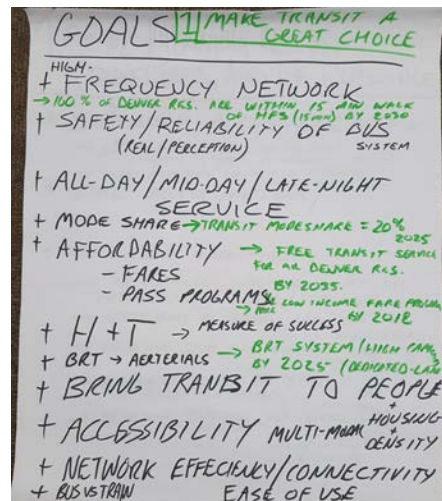 GOALS 1 MAKE TRANSIT A
GREAT CHOICE
HIGH-
+ FREQUENCY NETWORK
→ 100% OF DENVER RES. ARE WITHIN 15 MIN WALK
OF HFS (15MIN) BY 2030
+ SAFETY/RELIABILITY OF BUS
(REAL/PERCEPTION) SYSTEM
+ ALL-DAY/MID-DAY/LATE-NIGHT
SERVICE
+ MODE SHARE → TRANSIT MODESHARE = 20%
2025
+ AFFORDABILITY → FREE TRANSIT SERVICE
- FARES FOR ALL DENVER RES.
BY 2035.
- PASS PROGRAMS → LOW INCOME FARE PROGRAM
BY 2018
+ H + T → MEASURE OF SUCCESS
+ BRT → AERTERIALS → BRT SYSTEM/(HIGH
BY 2025 (DEDICATED-LAN
+ BRING TRANSIT TO PEOPLE
+
+ ACCESSIBILITY MULTI-MODAL HOUSING
+
DENSITY
+ NETWORK EFFECIENCY/CONNECTIVITY
+ BUS VS TRAW EASE OF USE